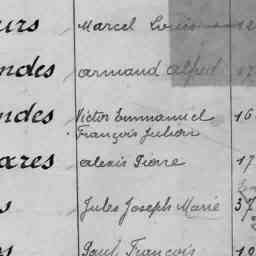 urs Marcel Louis 12
ndes armand alfred 17
ndes Victor Emmanuel 16
François Julien
ares alexis Pierre 17
s Jules Joseph Marie 37
es Paul François 19